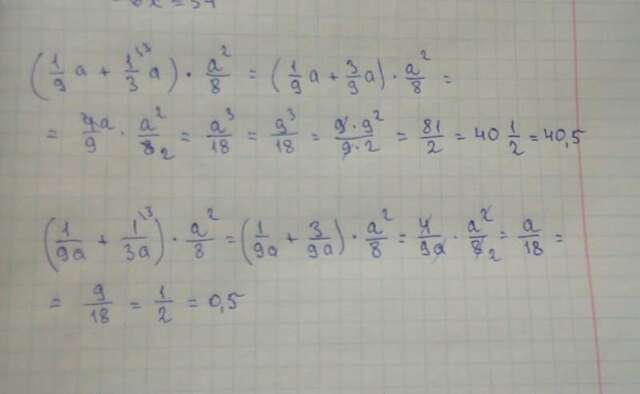 (1/9 a + 1\3/3 a) · a²/8 = (1/9 a + 3/9 a) · a²/8 =
= 4a/9 · a²/8 2 = a³/18 = 9³/18 = 9·9²/9·2 = 81/2 = 40 1/2 = 40,5
(1/9a + 1\3/3a) · a²/8 = (1/9a + 3/9a) · a²/8 = 4/9a · a²/8 2 = a/18 =
= 9/18 = 1/2 = 0,5